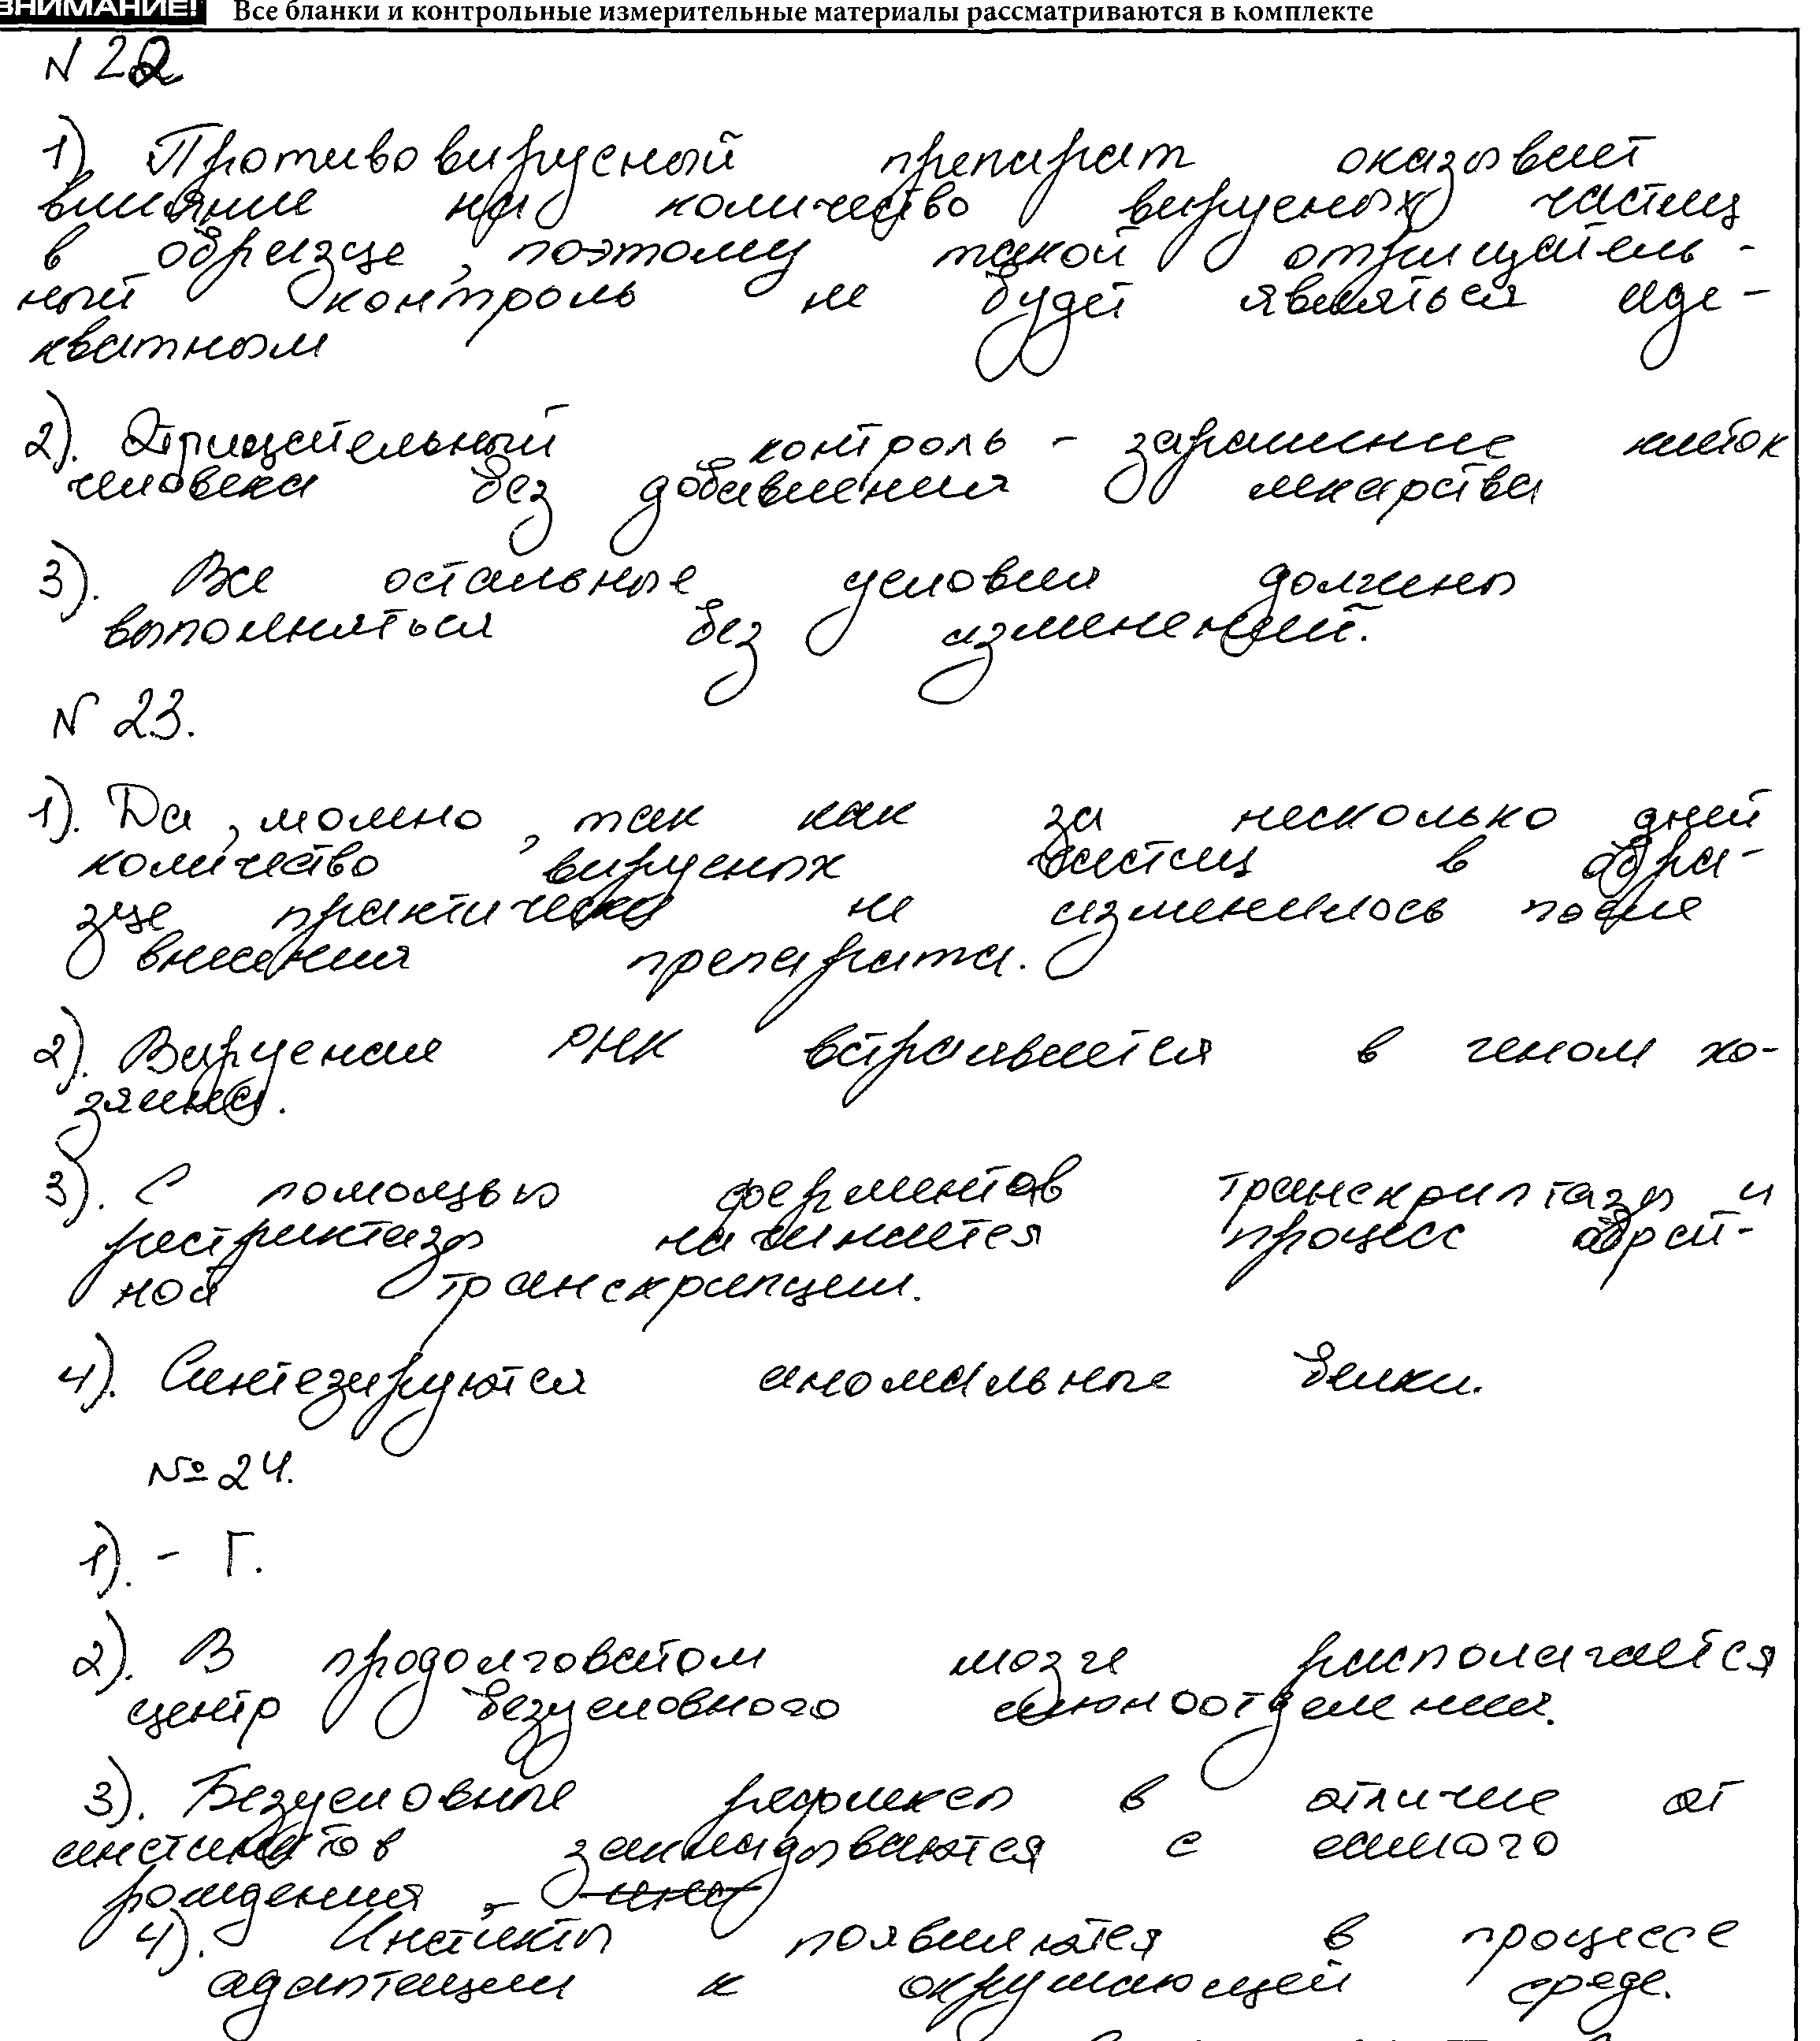 ВНИМАНИЕ! Все бланки и контрольные измерительные материалы рассматриваются в комплекте
N 22
1) Противовирусный препарат оказывает
влияние на количество вирусных частиц
в образце, поэтому такой отрицатель-
ный контроль не будет являться аде-
кватным
2). Отрицательный контроль - заражение клеток
человека без добавления лекарства
3). Все остальные условия должны
выполняться без изменений.
N 23.
1). Да, можно, так как за несколько дней
количество вирусных частиц в обра-
зце практически не изменилось после
внесения препарата.
2). Вирусная РНК встраивается в геном хо-
зяина.
3). С помощью ферментов транскриптазы и
рестриктазы начинается процесс обрат-
ной транскрипции.
4). Синтезируются аномальные белки.
№ 24.
1). - Г.
2). В продолговатом мозге располагается
центр безусловного слюноотделения.
3). Безусловные рефлексы в отличие от
инстинктов закладываются с самого
рождения,
4). Инстикты появляются в процессе
адаптации к окружающей среде.